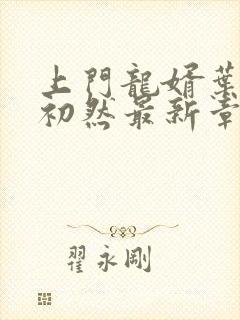 上門龍婿葉
初然最新章
翟永剛